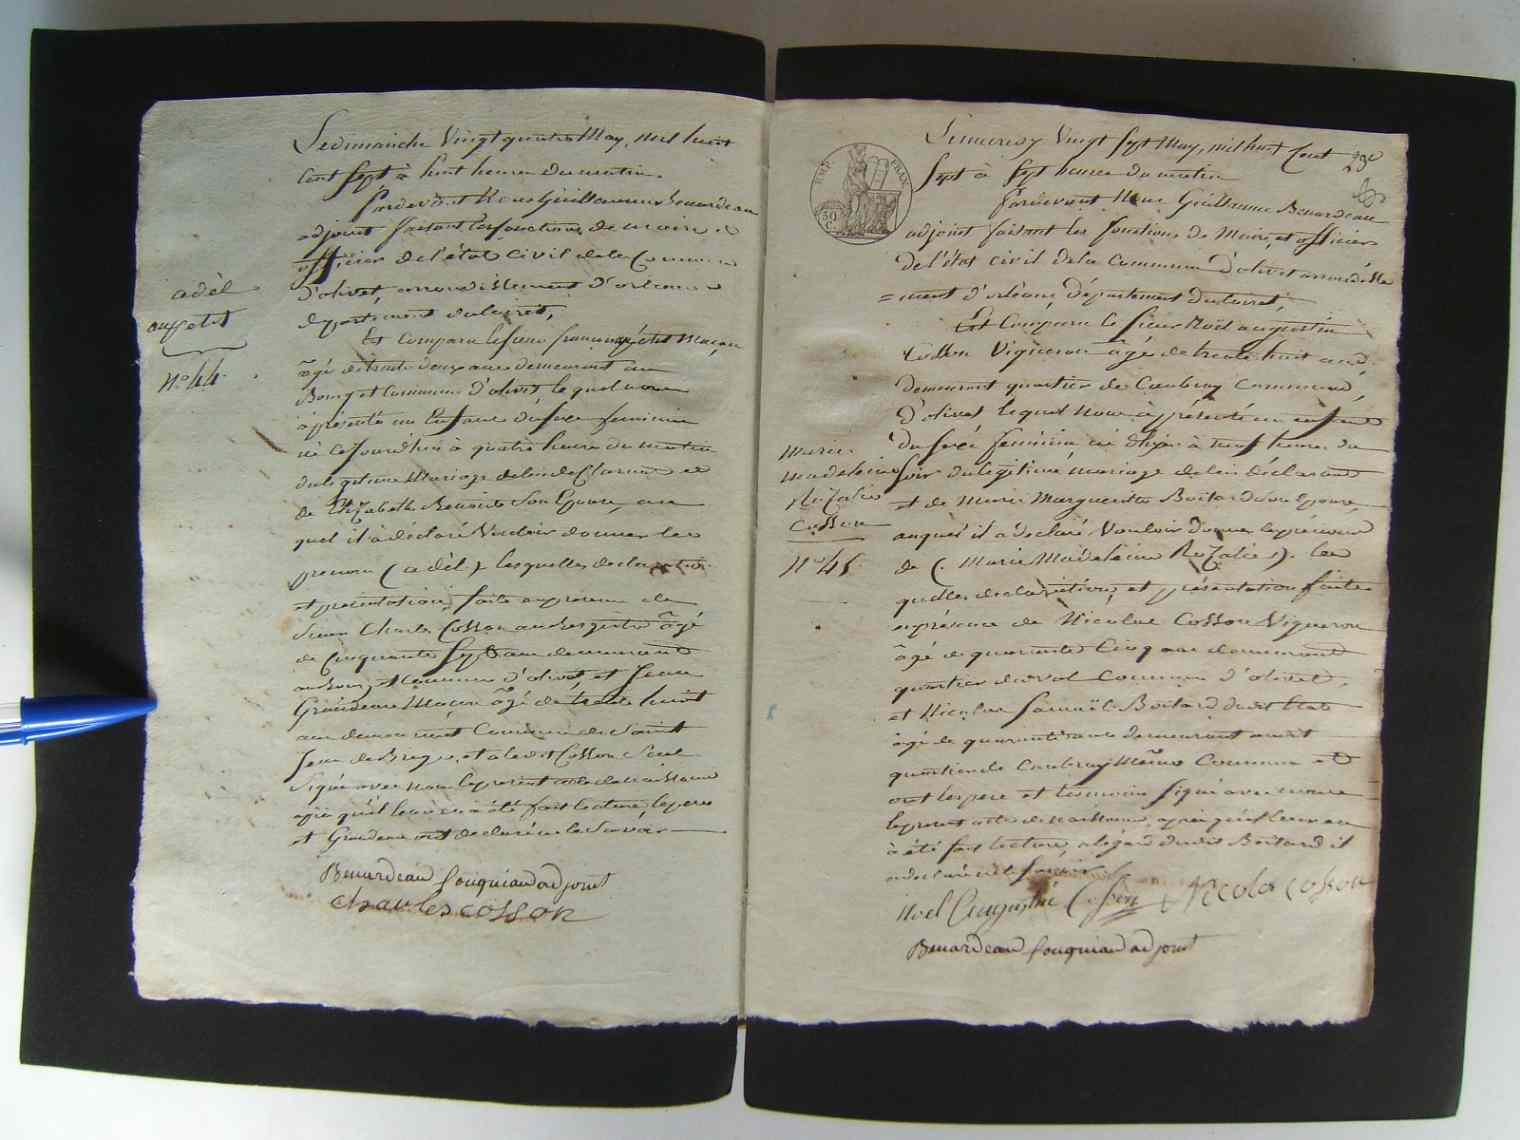 Le dimanche Vingt quatre May, mil huit
Cent Sept à huit heures du matin.
Pardevant Nous Guillaume Benardeau
adjoint faisant les fonctions de maire et
officier de l'état Civil de la Commune
d'olivet, arrondissement d'orleans
departement du loiret,
Est Comparu le sieur françois petit Maçon
âgé de trente deux ans demeurant au
Bourg et Commune d'olivet lequel nous
à présenté un Enfant du sexe feminin
né Cejourd'hui à quatre heures du matin
du legitime Mariage de lui declarant et
de Elizabeth Benoist Son Epouse, au
quel il à déclaré Vouloir donner les
prenom (adèl) lesquelles declaration
et présentation faite en presence de
Sieur Charles Cosson aubergiste âgé
de Cinquante Sept ans demeurant
au bourg et Commune d'olivet, et Jean
Graideau Maçon âgé de trente huit
ans demeurant Commune de Saint
Jean de Braye, et a ledit Cosson Seul
Signé avec nous le present acte de naissance
après qu'il leur en à été fait lecture, le pere
et Graideau ont declaré ne le Savoir
Benardeau fouquiau adjoint
charles cosson
adèl
petit
N° 44.
EMP. FRAN.
50
C.
Le mercredy Vingt Sept May, mil huit Cent
Sept à Sept heures du matin
Pardevant Nous Guillaume Benardeau
adjoint faisant les fonctions de Maire, et officier
de l'état civil de la Commune d'olivet arrondisse
=ment d'orléans, Département du loiret,
Est Comparu le Sieur Noël augustin
Cosson Vigneron âgé de trente huit ans
demeurant quartier de Caubray Commune
d'olivet lequel Nous à présenté un enfant
du Sexe feminin né d'hier à neuf heures du
Soir du légitime mariage de lui déclarant
et de Marie Marguerite Boitard Son Epouse,
auquel il a déclaré Vouloir donner le prenom
de (Marie Madeleine Rozalie). les
quelles declaration, et présentation faite
en présence de Nicolas Cosson Vigneron
âgé de quarante Cinq ans demeurant
quartier du val Commune d'olivet,
et Nicolas Samuël Boitard
âgé de quarante ans demeurant audit
quartier de Caubray Même Commune et
ont les pere et témoin Signé avec nous
le present acte de naissance, après qu'il leur en
à été fait lecture, a légard dudit Boitard il
a declaré ne le Savoir
Noel Augustin Cosson Nicolas cosson
Benardeau fouquiau adjoint
Marie
Madeleine
Rozalie
Cosson
N° 45.